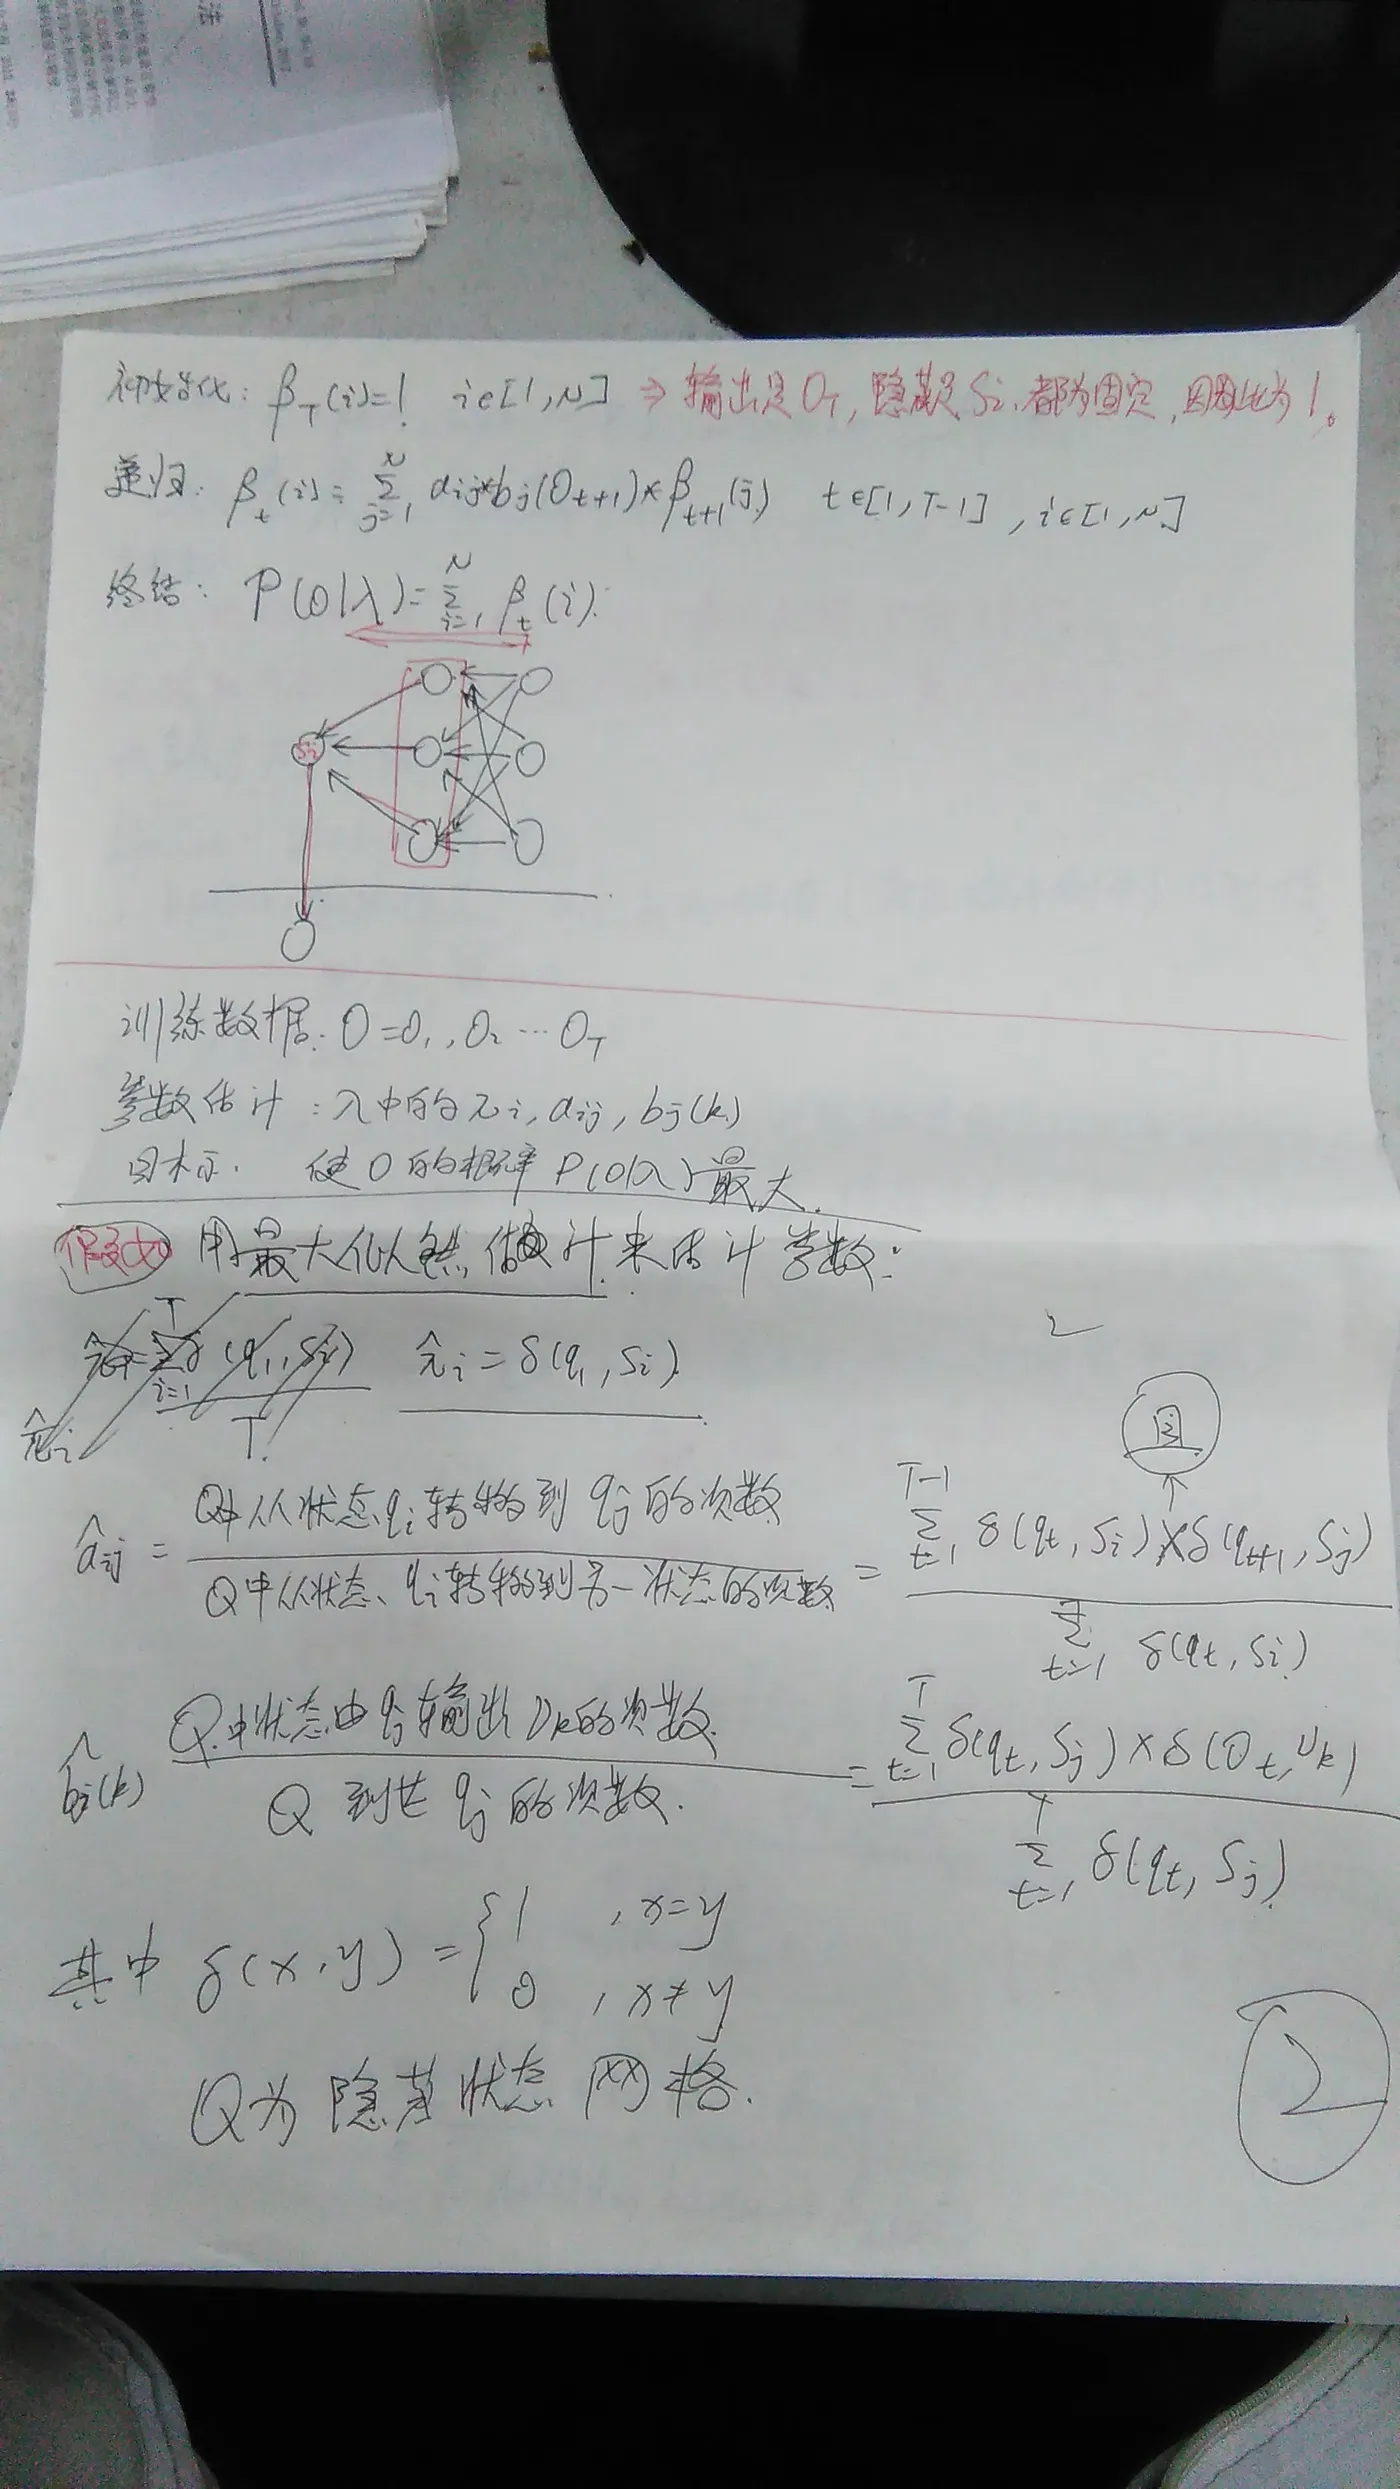 法
初始化: β_T(i)=1 i∈[1,N] ⇒ 输出是O_T, 隐藏是Si, 都为固定, 因此为1。
递归: β_t(i)=∑_{j=1}^{N} aij*bj(O_{t+1})*β_{t+1}(j) t∈[1,T-1], i∈[1,N]
终结: P(O|λ)=∑_{i=1}^{N} β_t(i).
Si
训练数据: O=O₁,O₂…O_T
参数估计: λ中的πi, aij, bj(k)
目标. 使O的概率P(O|λ)最大.
假如 用最大似然估计来估计参数:
π̂i=δ(q₁,Si)
2
π̂i
T
因
âij = Q中从状态qi转移到qj的次数 / Q中从状态、qi转移到另一状态的次数 = ∑_{t=1}^{T-1} δ(qt,Si)×δ(q_{t+1},Sj) / ∑_{t=1} δ(qt,Si)
b̂j(k) Q中状态由qj输出Vk的次数 / Q到达qj的次数. = ∑_{t=1}^{T} δ(qt,Sj)×δ(Ot,Vk) / ∑_{t=1}^{T} δ(qt,Sj)
其中 δ(x,y)={1 ,x=y
0 ,x≠y
Q为隐藏状态网格.
2